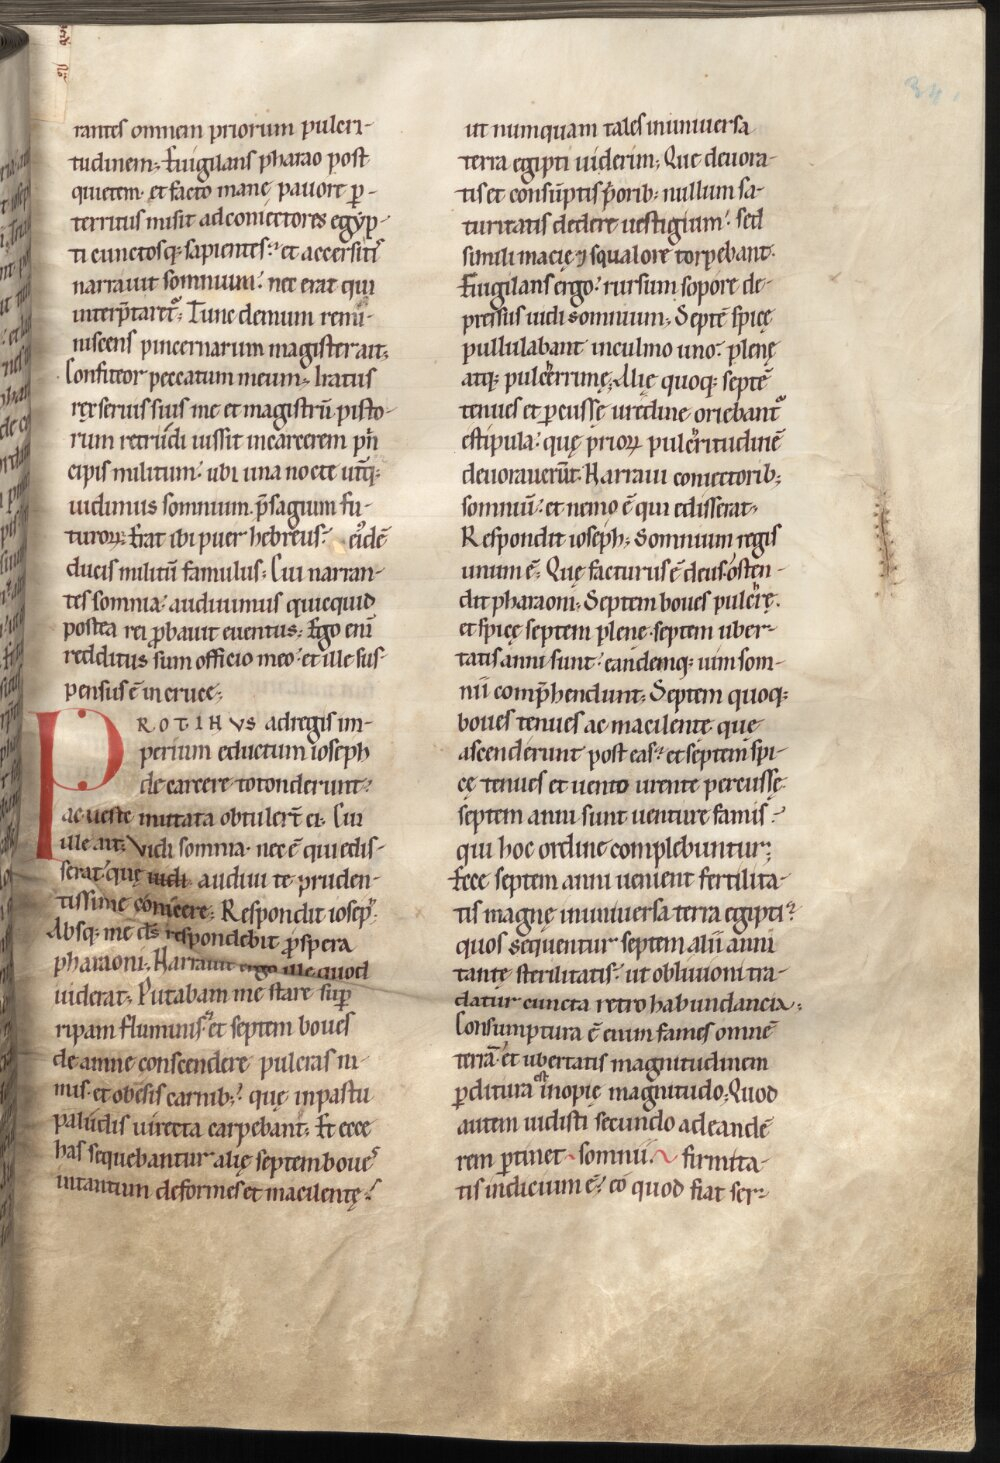 34.
rantes omnem priorum pulcri-
tudinem; Euigilans pharao post
quietem. et facto mane pauore p̱-
territus misit ad coniectores egyp-
ti cunctosq; sapientes. et accersitis
narrauit somnium. nec erat qui
interp̄taret᷑; Tunc demum remi-
niscens pincernarum magister ait;
Confiteor peccatum meum; Iratus
rex seruis suis me et magistrū pisto-
rum retrudi iussit in carcerem prī
cipis militum. ubi una nocte utq;
uidimus somnium p̄sagium fu-
turoꝝ; Erat ibi puer hebreus. eiꝰdē
ducis militū famulus; Cui narran-
tes somnia. audiuimus quicquid
postea rei ꝓbauit euentus; Ego eni
redditus sum officio meo. et ille sus-
pensus ē in cruce;
PROTINUS ad regis im-
perium eductum ioseph
de carcere totonderunt.
ac ueste mutata obtulert̄ ei. Cui
ille ait; Vidi somnia. nec ē qui edis-
serat que uidi. audiui te pruden-
tissime conicere; Respondit ioseph;
Absq; me d̄s respondebit ꝓspera
pharaoni; Narrauit ergo ille quod
uiderat; Putabam me stare suꝑ
ripam fluminis. et septem boues
de amne conscendere pulcras ni-
mis. et obesis carnib;. quę in pastu
paludis uirecta carpebant; Et ecce
has sequebantur alię septem boues
intantum deformes et macilentę.
ut numquam tales in uniuersa
terra egipti uiderim; Que deuora-
tis et consūptis p̄orib; nullum sa-
turitatis dedere uestigium. sed
simili macię ⁊ squalore torpebant.
Euigilans ergo. rursum sopore de-
pressus uidi somnium; Septē spicę
pullulabant in culmo uno. plenę
atq; pulcerrimę; Alię quoq; septē
tenues et ꝑcussę uredine oriebant᷑
e stipula. quę prioꝝ pulcritudinē
deuorauerūt. Narraui coniectorib;
somniū. et nemo ē qui edisserat;
Respondit ioseph; Somnium regis
unum ē; Que facturus ē deus. osten-
dit pharaoni; Septem boues pulcrę.
et spicę septem plene. septem uber-
tatis anni sunt. eandemq; uim som-
nii comp̄hendunt; Septem quoq;
boues tenues ac macilente que
ascenderunt post eas. et septem spi-
cę tenues et uento urente percussę
septem anni sunt uenture famis.
qui hoc ordine complebuntur;
Ecce septem anni uenient fertilita-
tis magnę in uniuersa terra egipti.
quos sequentur septem alii anni
tantę sterilitatis. ut obliuioni tra-
datur cuncta retro habundancia;
Consumptura ē enim fames omnē
terrā. et ubertatis magnitudinem
ꝑditura est inopię magnitudo; Quod
autem uidisti secundo ad eandē
rem ꝑtinet somnii. firmita-
tis indicium ē. eo quod fiat ser-